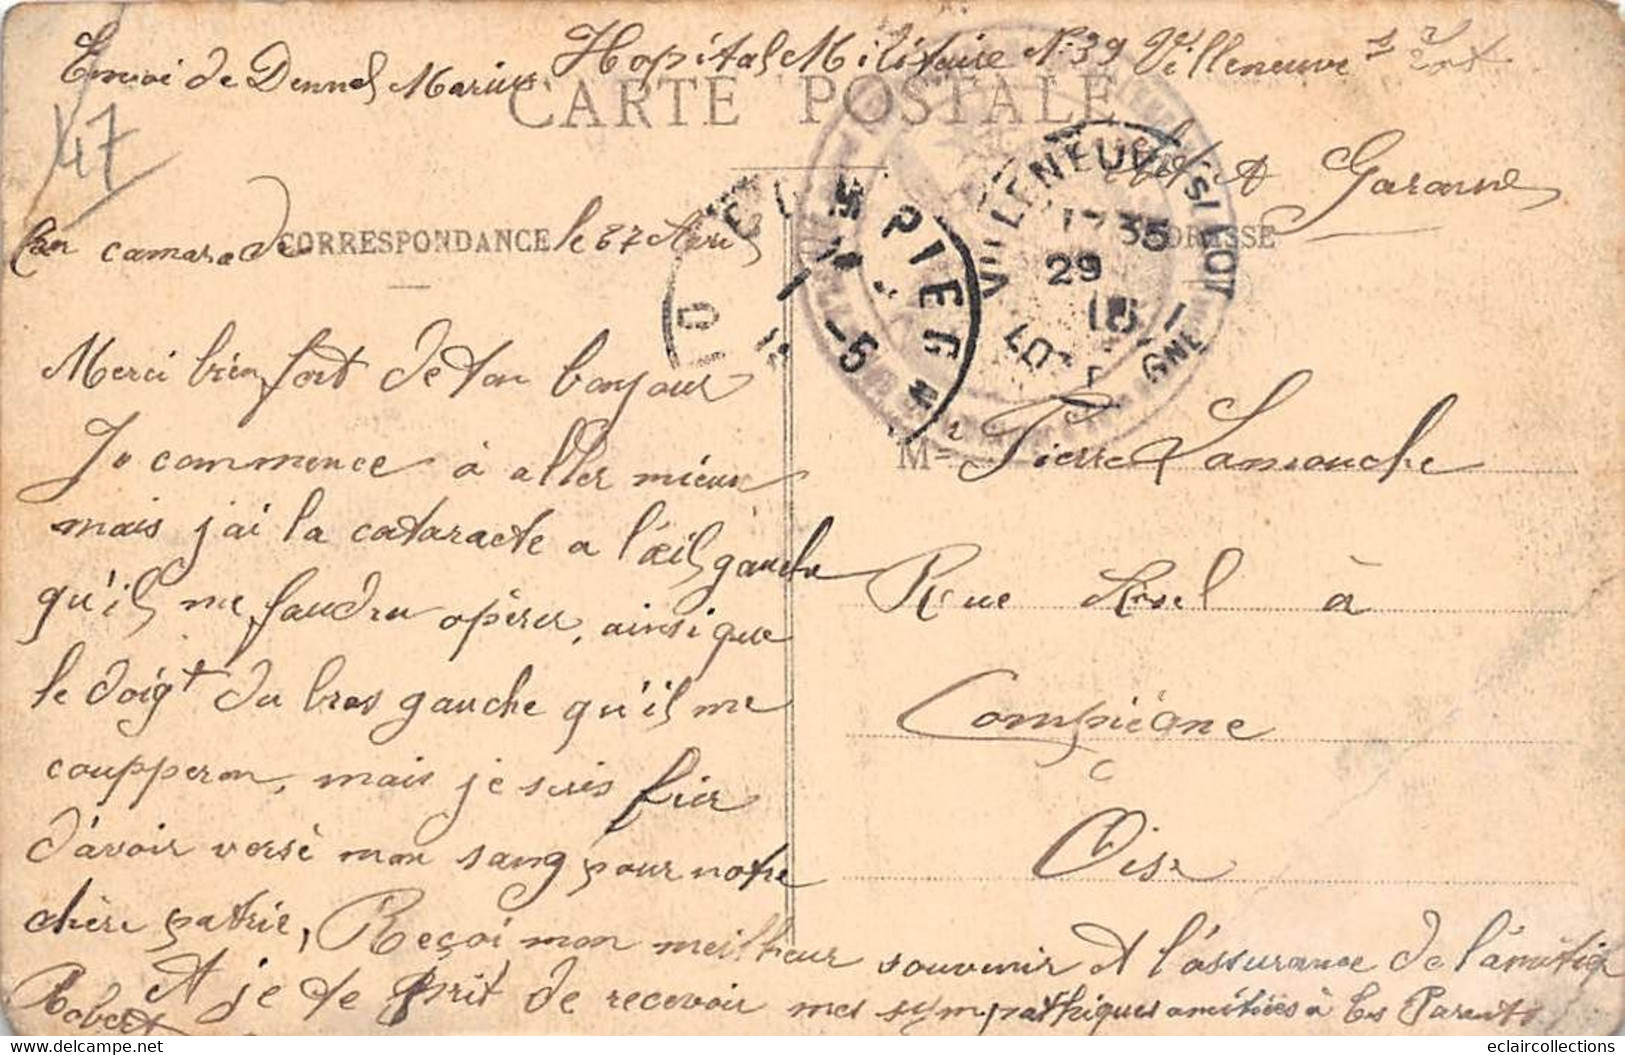 Envoi de Dennel Marius Hopital Militaire N: 39 Villeneuve s/ Lot
CARTE POSTALE
47
et Garonne
CORRESPONDANCE le 27 Avril
camarade
ADRESSE
VILLENEUVE S/ LOT
29
15
LOT
GNE
COMPIEGNE
-5
Merci bien fort de ton bonjour
Je commence à aller mieux
mais j'ai la cataracte a l'œil gauche
qu'il me faudra opèrer, ainsi que
le doigt du bras gauche qu'il me
coupperon, mais je suis fier
d'avoir versé mon sang pour notre
chère patrie, Reçoi mon meilheur souvenir et l'assurance de l'amitié
Robert et je te prit de recevoir mes sympathiques amitiées à tes Parents
Mr Pierre Lamouche
Rue à
Compiégne
Oise
eclaircollections